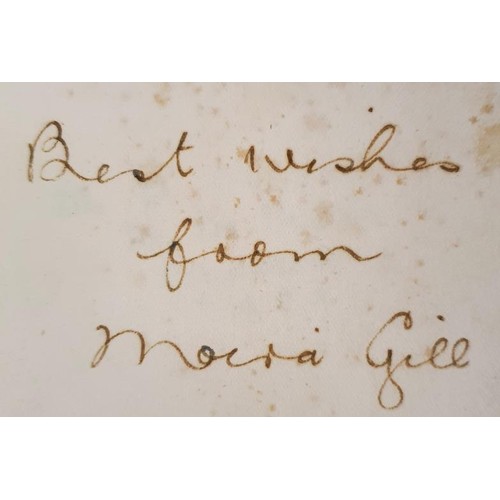 Best wishes
from
Moira Gill